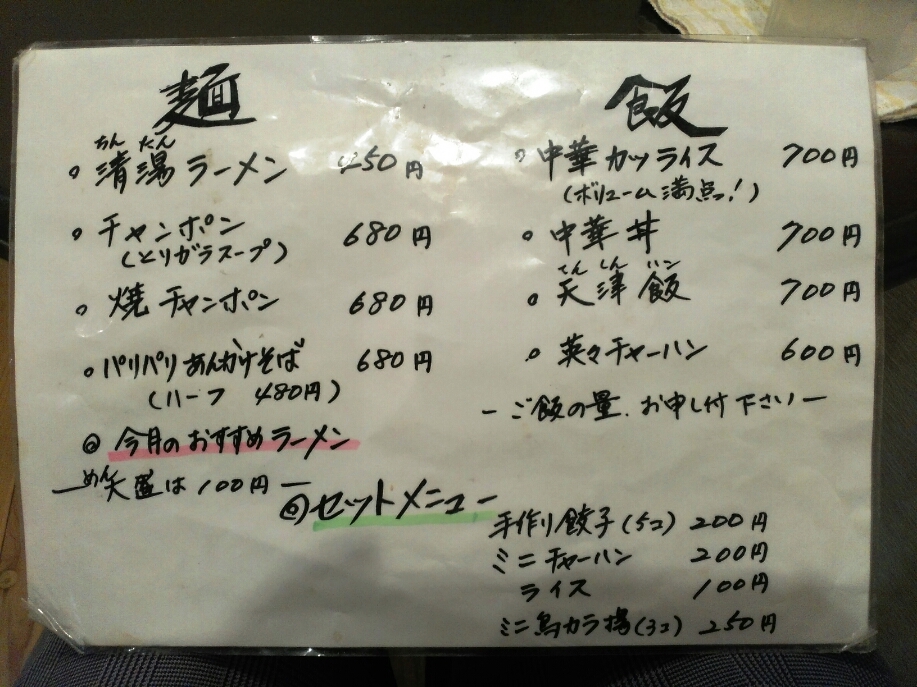 麺
ちんたん
清湯ラーメン 450円
チャンポン 680円
(とりガラスープ)
焼チャンポン 680円
パリパリあんかけそば 680円
(ハーフ 480円)
◎今月のおすすめラーメン
ーめん大盛は100円ー
飯
中華カツライス 700円
(ボリューム満点っ!)
中華丼 700円
てんしんハン
天津飯 700円
菜々チャーハン 600円
ーご飯の量、お申し付下さいー
◎セットメニュー
手作り餃子(5コ) 200円
ミニチャーハン 200円
ライス 100円
ミニ鳥カラ揚(3コ) 250円